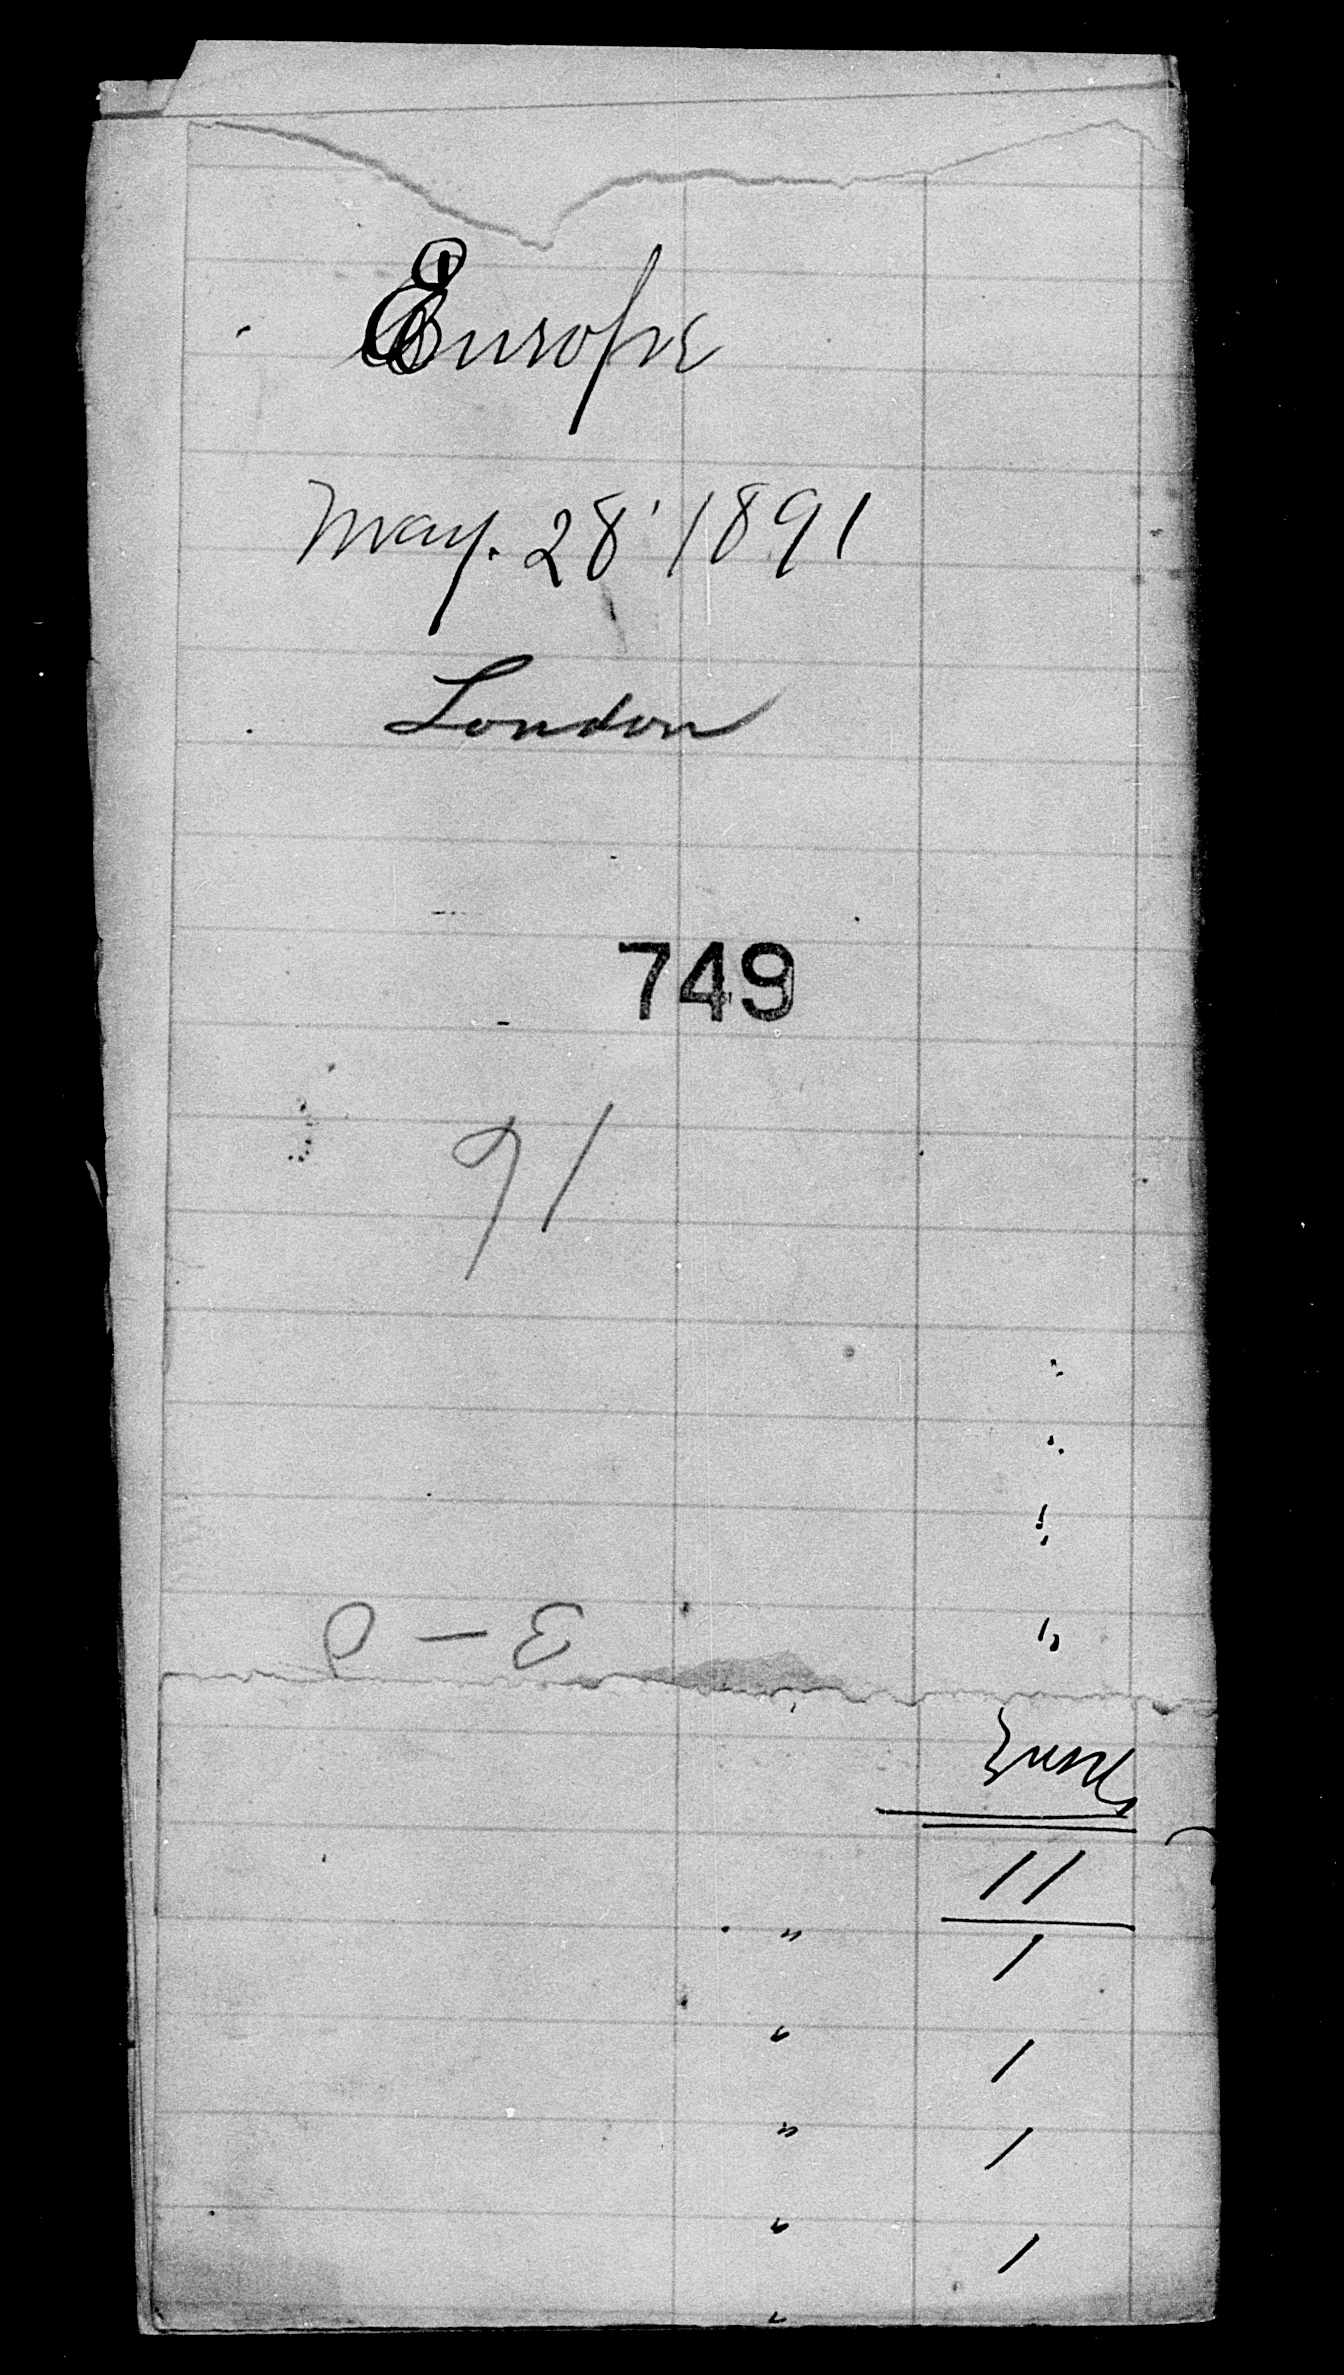 Europe
May. 28' 1891
London
749
91
3 - 0
11
" 1
" 1
" 1
" 1